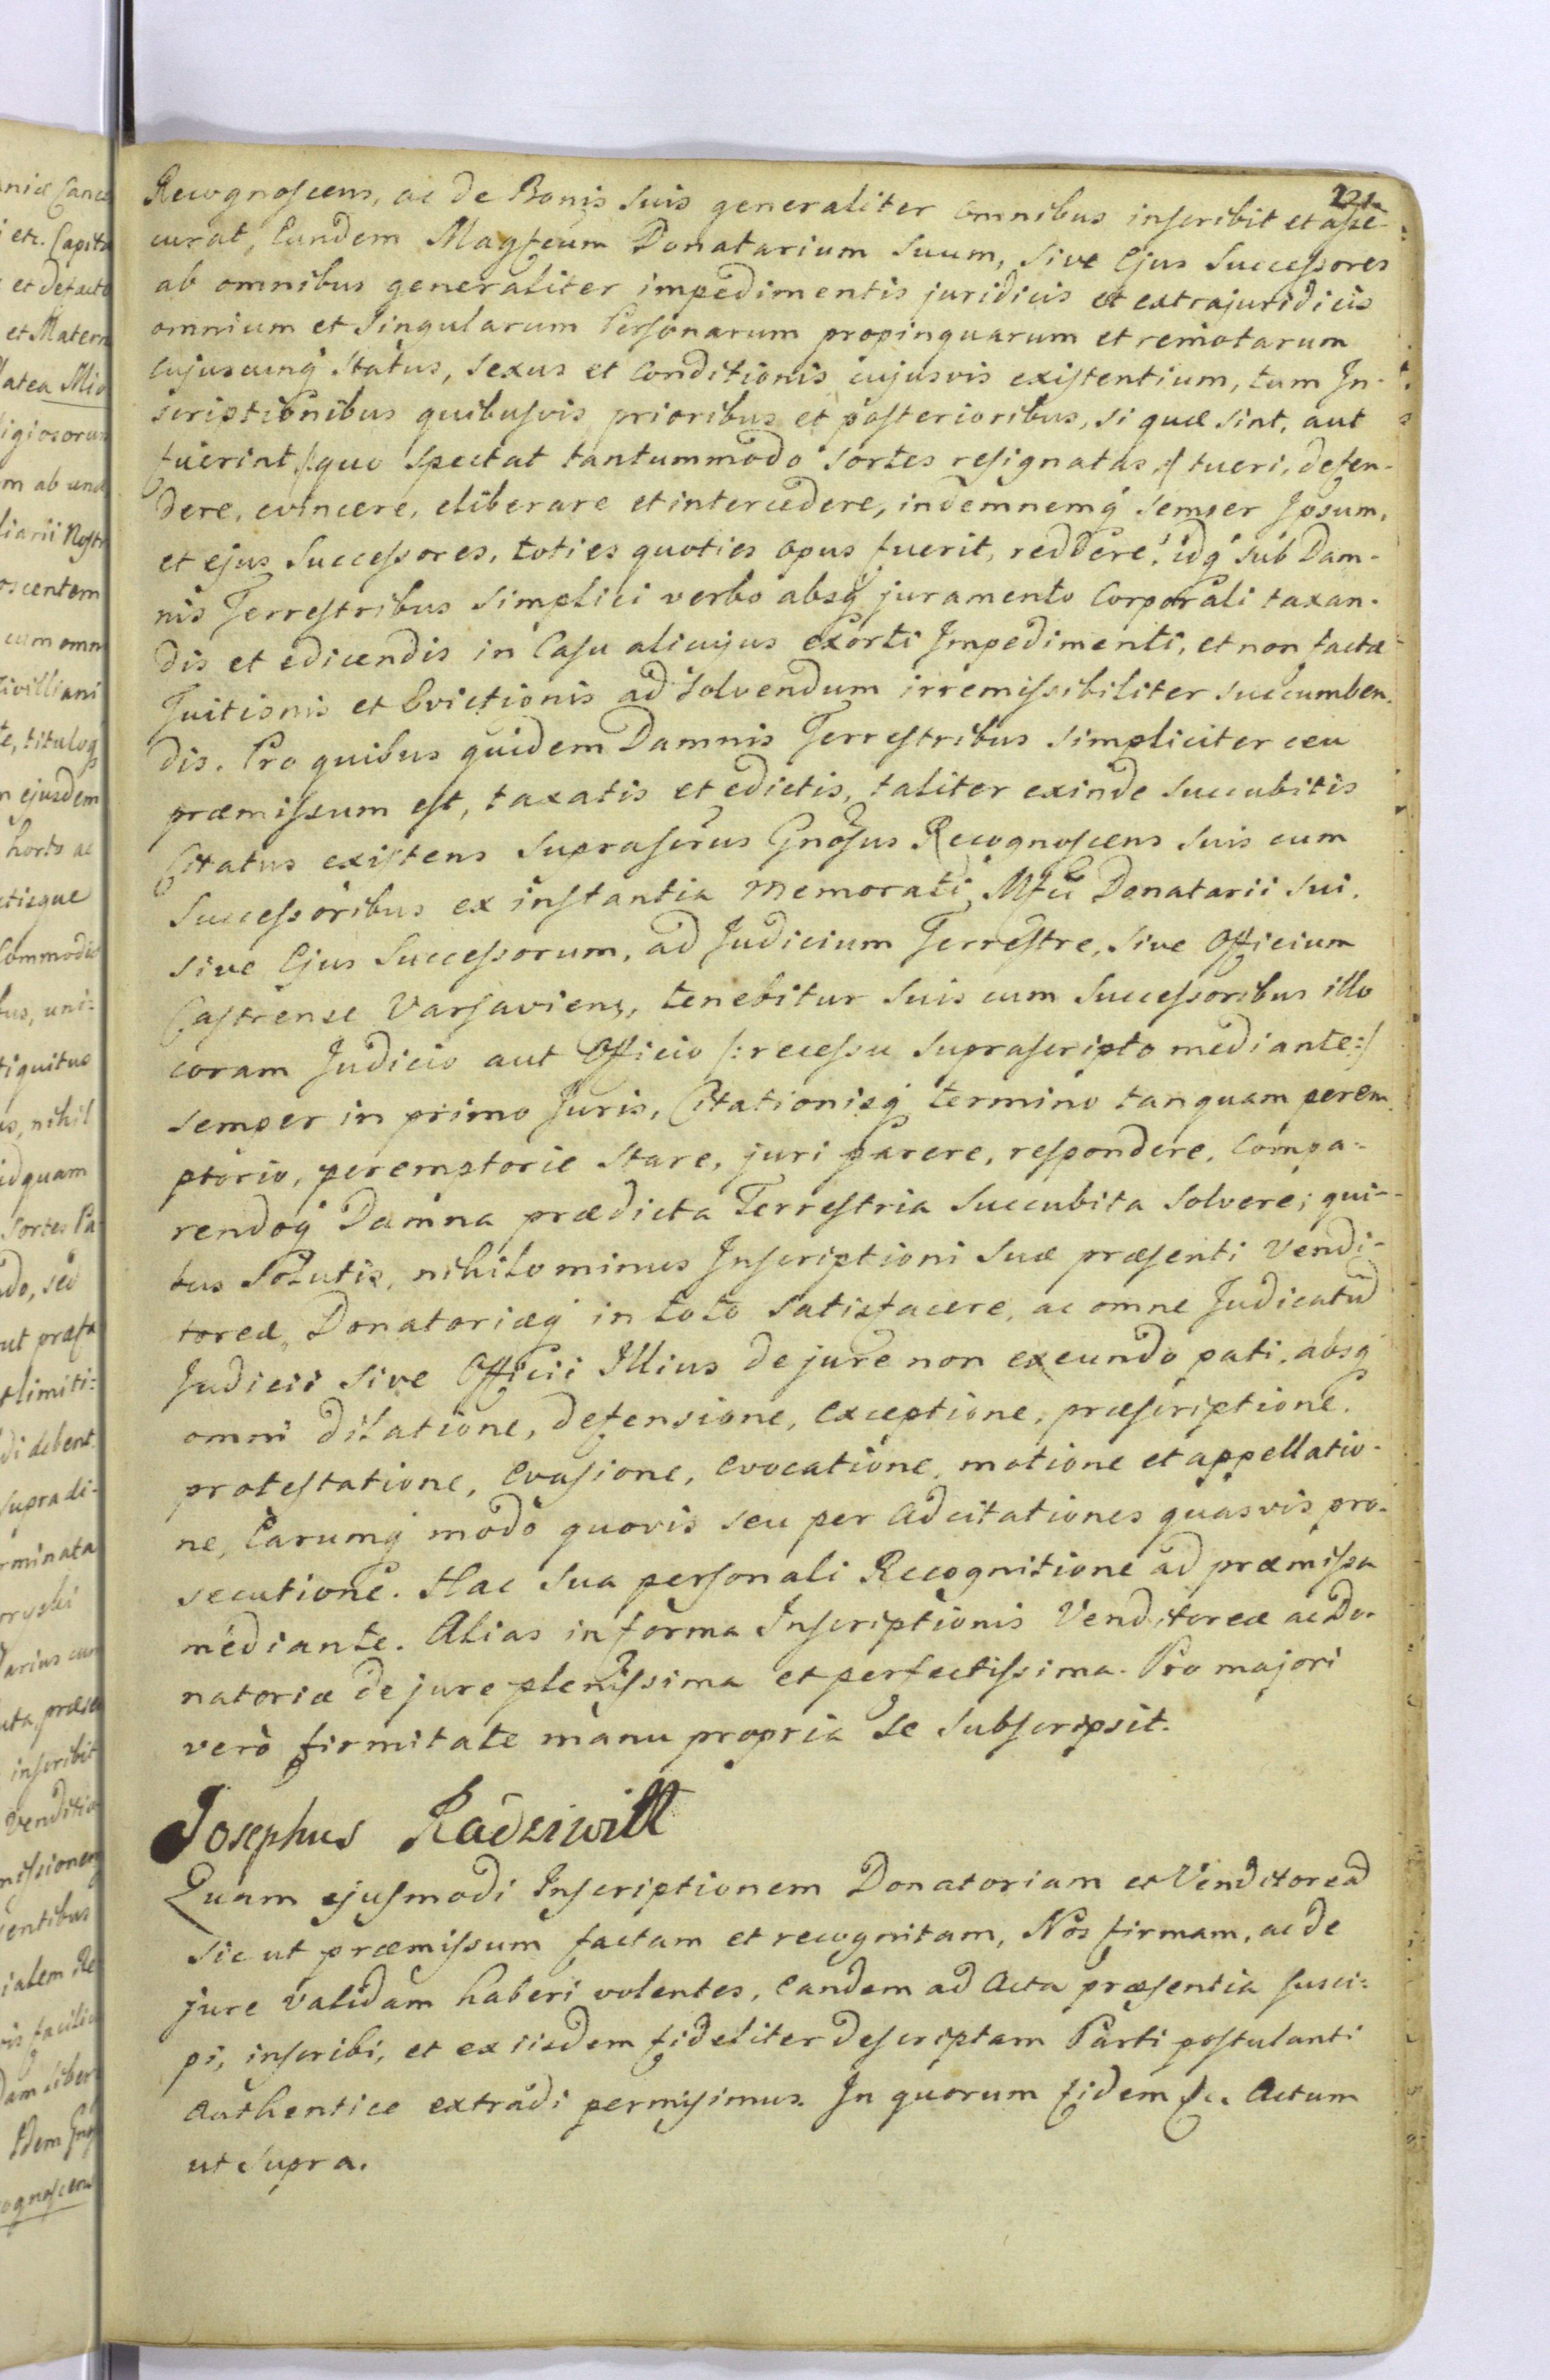 221
Recognoscens, ac de Bonis suis generaliter omnibus inscribit et asse-
curat, Eundem Magficum Donatarium Suum, sive Ejus Successores
ab omnibus generaliter impedimentis juridicis et extrajuridicis
omnium et Singularum Personarum propinquarum et remotarum
Cujuscunq́ Status, Sexus et Conditionis cujusvis existentium, tum In-
scriptionibus quibusvis prioribus et posterioribus, si quæ sint, aut
fuerint /:quo spectat tantummodo Sortes resignatas,:/ tueri, defen-
dere, evincere, eliberare et intercedere, indemnemq́ semper Ipsum,
et ejus Successores, toties quoties opus fuerit, reddere! idq́ sub Dam-
nis Terrestribus simplici verbo absq́ juramento Corporali taxan-
dis et edicendis in Casu alicujus exorti Impedimenti, et non factæ
Tuitionis et Evictionis ad Solvendum irremissibiliter succumben-
dis. Pro quibus quidem Damnis Terrestribus simpliciter ceu
præmissum est, taxatis et edictis, taliter exinde succubitis
Citatus existens Suprascrus Gnosus Recognoscens suis cum
Successoribus ex instantia memorati Mfci Donatarii sui,
sive Ejus Successorum, ad Judicium Terrestre, sive Officium
Castrense Varsaviens, tenebitur suis cum Successoribus illo
coram Judicio aut Officio /:recessu suprascripto mediante:/
semper in primo Juris, Citationisq́ termino tanquam perem-
ptorio, peremptorie Stare, juri parere, respondere, Compa-
rendoq́ Damna prædicta Terrestria Succubita Solvere; qui-
bus Solutis, nihilominus Inscriptioni Suæ præsenti Vendi-
toreæ, Donatoriæq́ in toto satisfacere, ac omne Judicatu
Judicii sive Officii Illius de jure non exeundo pati, absq́
omni dilatione, defensione, exceptione, præscriptione,
protestatione, evasione, evocatione, motione et appellatio-
ne, Earumq́ modo quovis seu per Adcitationes quasvis pro-
secutione. Hac Sua personali Recognitione ad præmissa
mediante. Alias in forma Inscriptionis Venditoreæ ac Do-
natoriæ de jure plenissima et perfectissima. Pro majori
verò firmitate manu propria se subscripsit.
Josephus Radziwiłł
Quam ejusmodi Inscriptionem Donatoriam et Venditorea
sic ut præmissum factam et recognitam, Nos firmam, ac de
jure validam haberi volentes, eandem ad Acta præsentia susci-
pi, inscribi, et ex iisdem fideliter descriptam Parti postulanti
authentice extradi permisimus. In quorum fidem &c. Actum
ut supra.